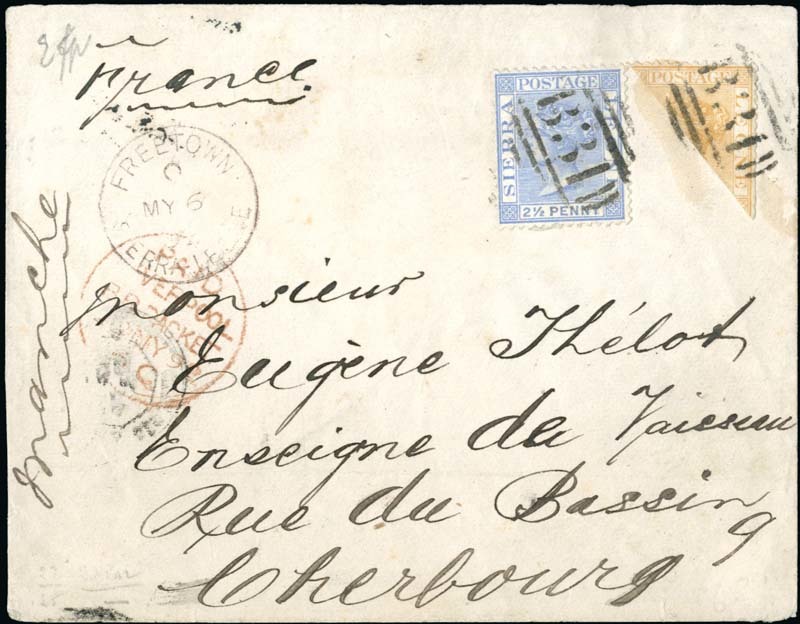 France
SIERRA
POSTAGE
2½ PENNY
POSTAGE
B31
B31
FREETOWN
C
MY 6
SIERRA LEONE
PAID
LIVERPOOL
BR. PACKET
MY
Manche
Monsieur
Eugène Thélot
Enseigne de Vaisseau
Rue du Bassin
9
Cherbourg